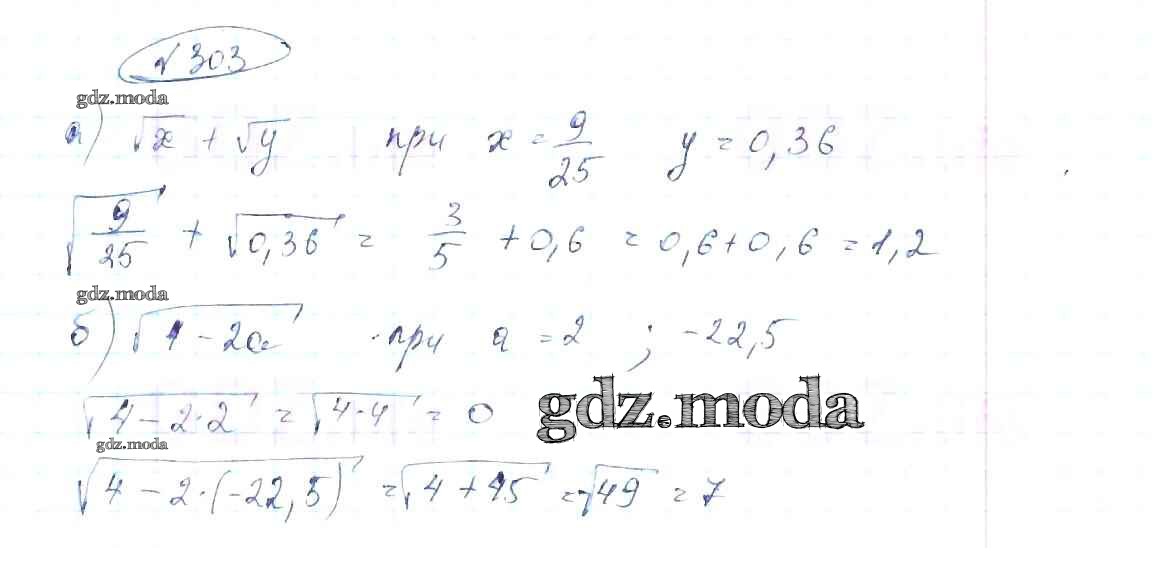 √303
gdz.moda
а) √x + √y при x = 9/25 y = 0,36
√(9/25) + √0,36 = 3/5 + 0,6 = 0,6+0,6 = 1,2
gdz.moda
б) √4-2a при a = 2 ; -22,5
√4-2·2 = √4·4 = 0 gdz.moda
gdz.moda
√4-2·(-22,5) = √4+45 = √49 = 7